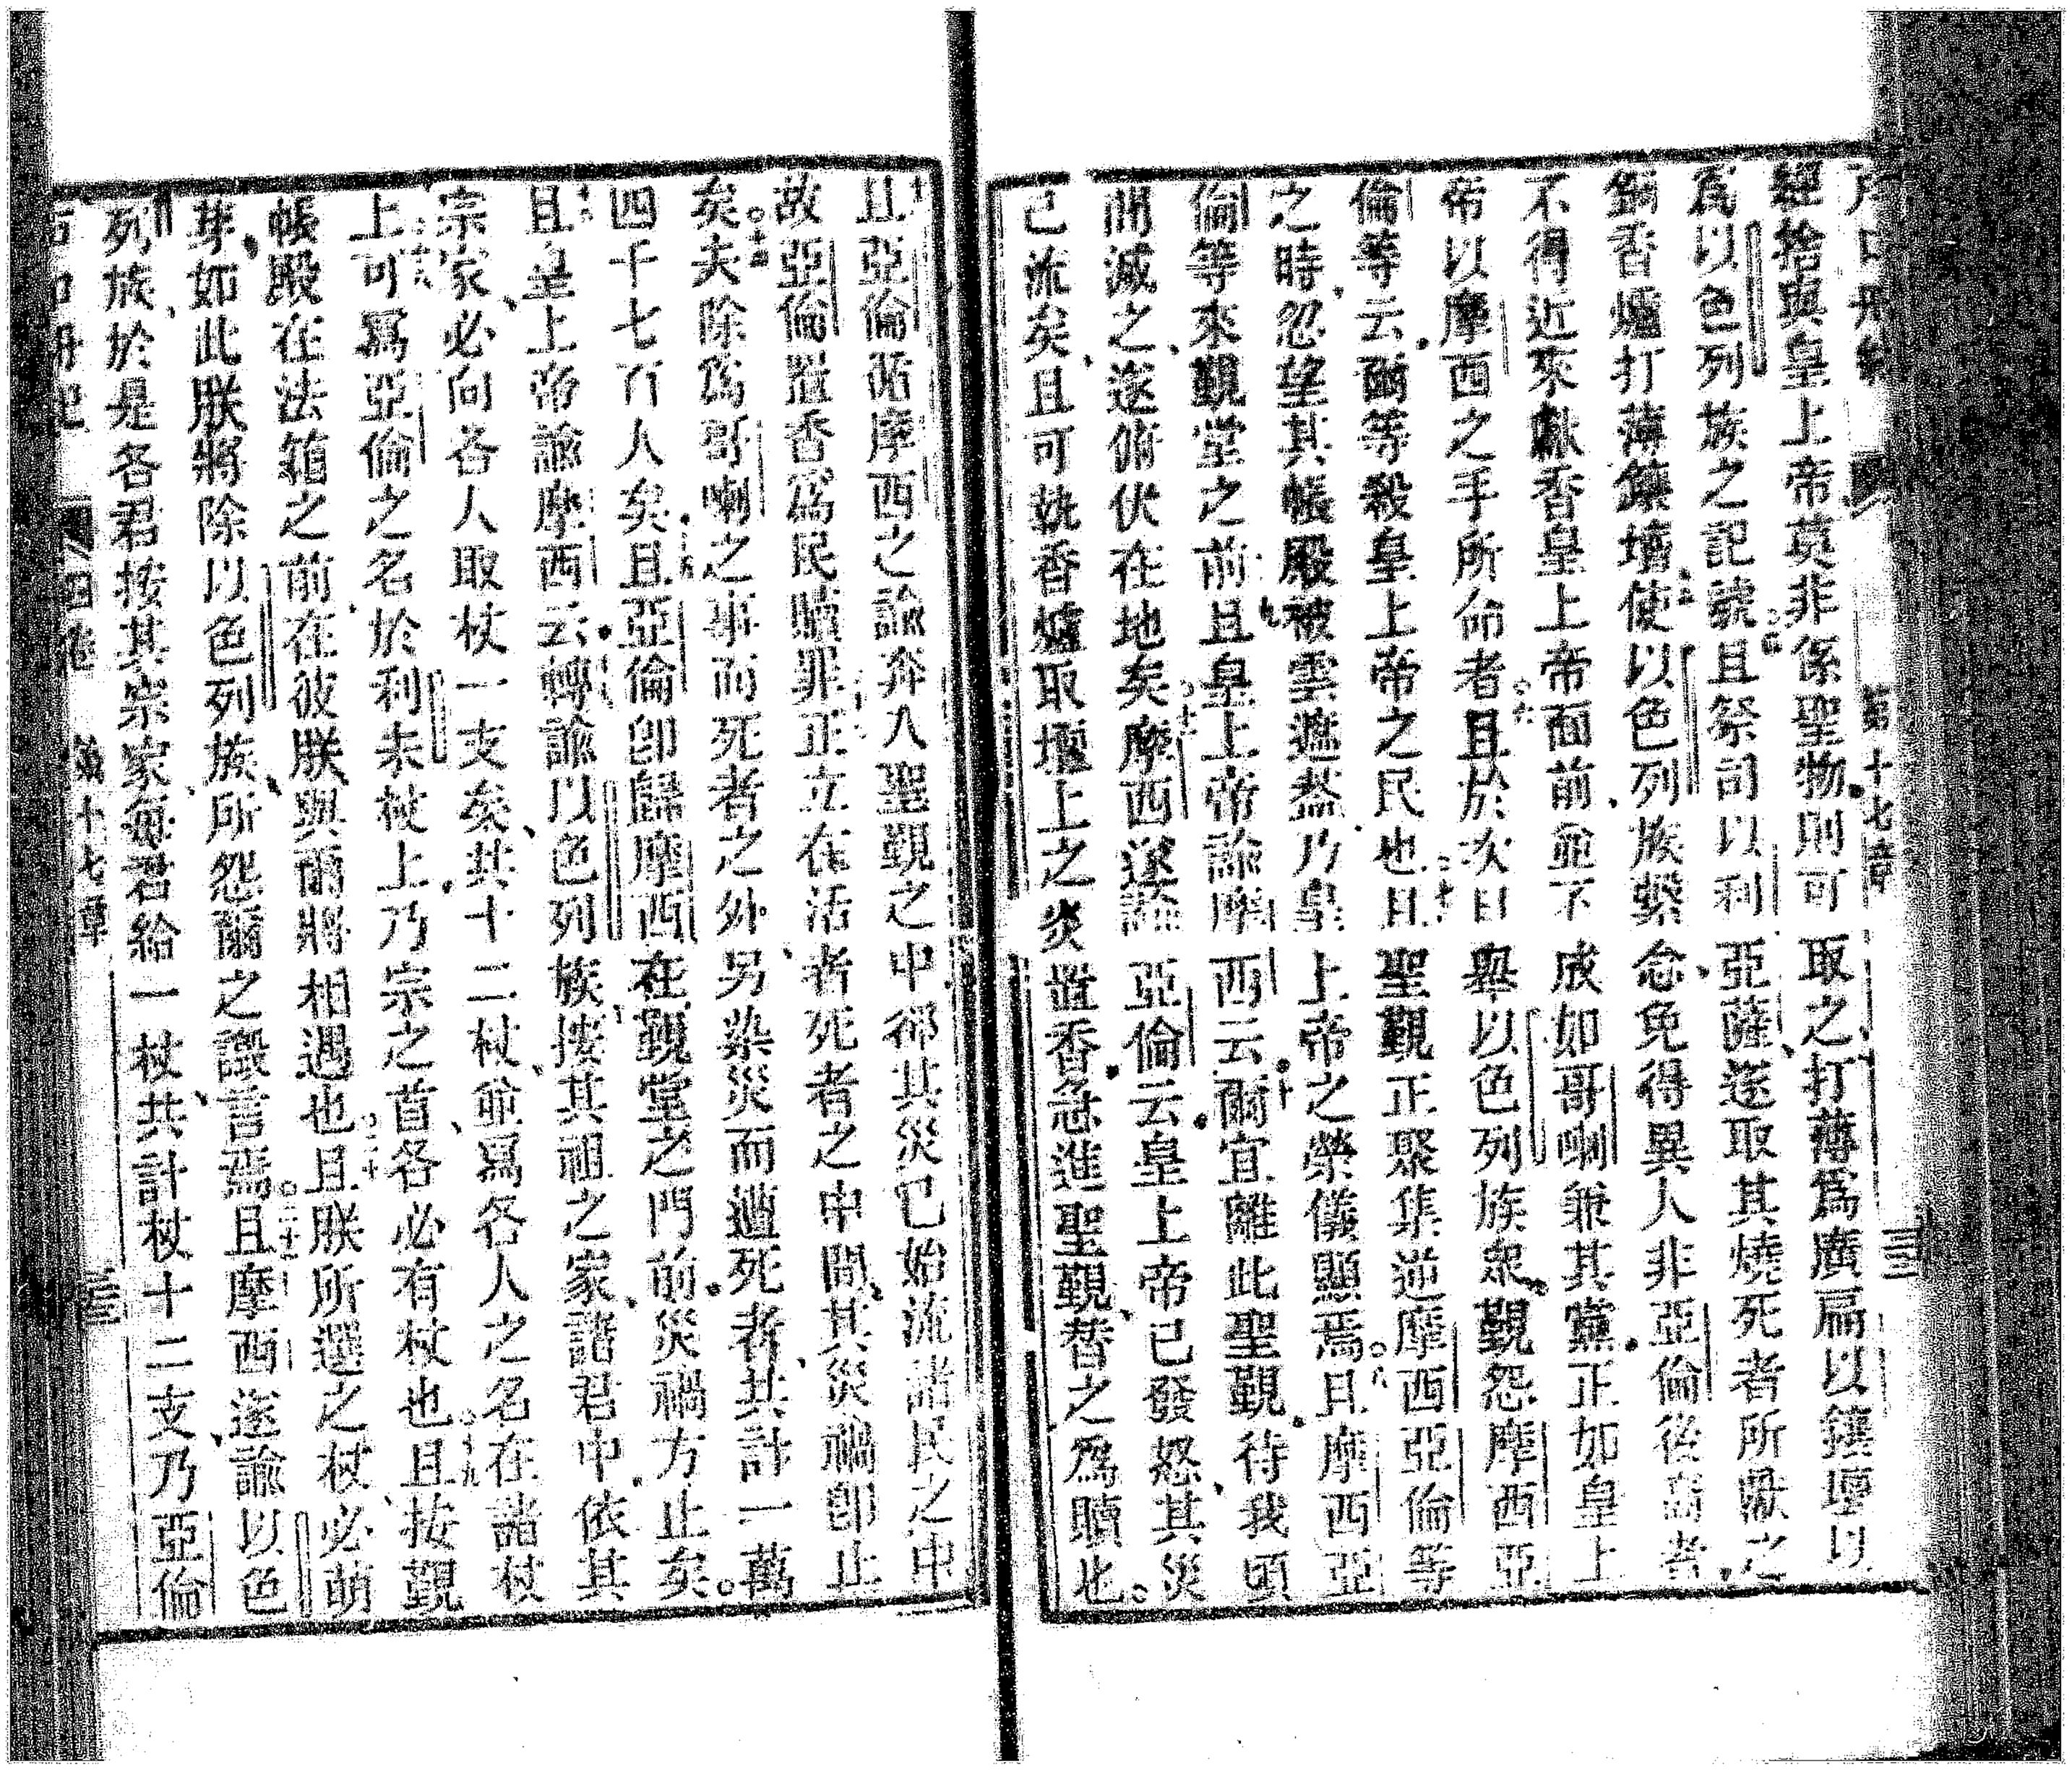 第十七章 三
經拾與皇上帝莫非係聖物則可取之打薄爲廣扁以鑲壇以
爲以色列族之記號且祭司以利亞薩遂取其燒死者所獻之
銅香爐打薄鑲壇使以色列族繫念免得異人非亞倫後裔者
不得近來獻香皇上帝面前並不成如哥喇兼其黨正如皇上
帝以摩西之手所命者且於次日舉以色列族衆覲怨摩西亞
倫等云爾等殺皇上帝之民也且聖覲正聚集逆摩西亞倫等
之時忽望其帳殿被雲遮蓋乃皇上帝之榮儀顯焉且摩西亞
倫等來覲堂之前且皇上帝諭摩西云爾宜離此聖覲待我頃
間滅之遂俯伏在地矣摩西遂諭亞倫云皇上帝已發怒其災
已流矣且可執香爐取壇上之炎置香急進聖覲替之爲贖也
且亞倫循摩西之諭奔入聖覲之中郤其災已始流諸民之中
故亞倫置香爲民贖罪正立在活者死者之中間其災禍卽止
矣夫除爲哥喇之事而死者之外另染災而遭死者共計一萬
四千七百人矣且亞倫卽歸摩西在覲堂之門前災禍方止矣
且皇上帝諭摩西云轉諭以色列族按其祖之家諧君中依其
宗家必向各人取杖一支矣共十二杖並寫各人之名在諸杖
上可寫亞倫之名於利未杖上乃宗之首各必有杖也且按覲
帳殿在法箱之前在彼朕與爾將相遇也且朕所選之杖必萌
芽如此朕將除以色列族所怨爾之譏言焉且摩西遂諭以色
列族於是各君按其宗家每君給一杖共計杖十二支乃亞倫
第十七章 三